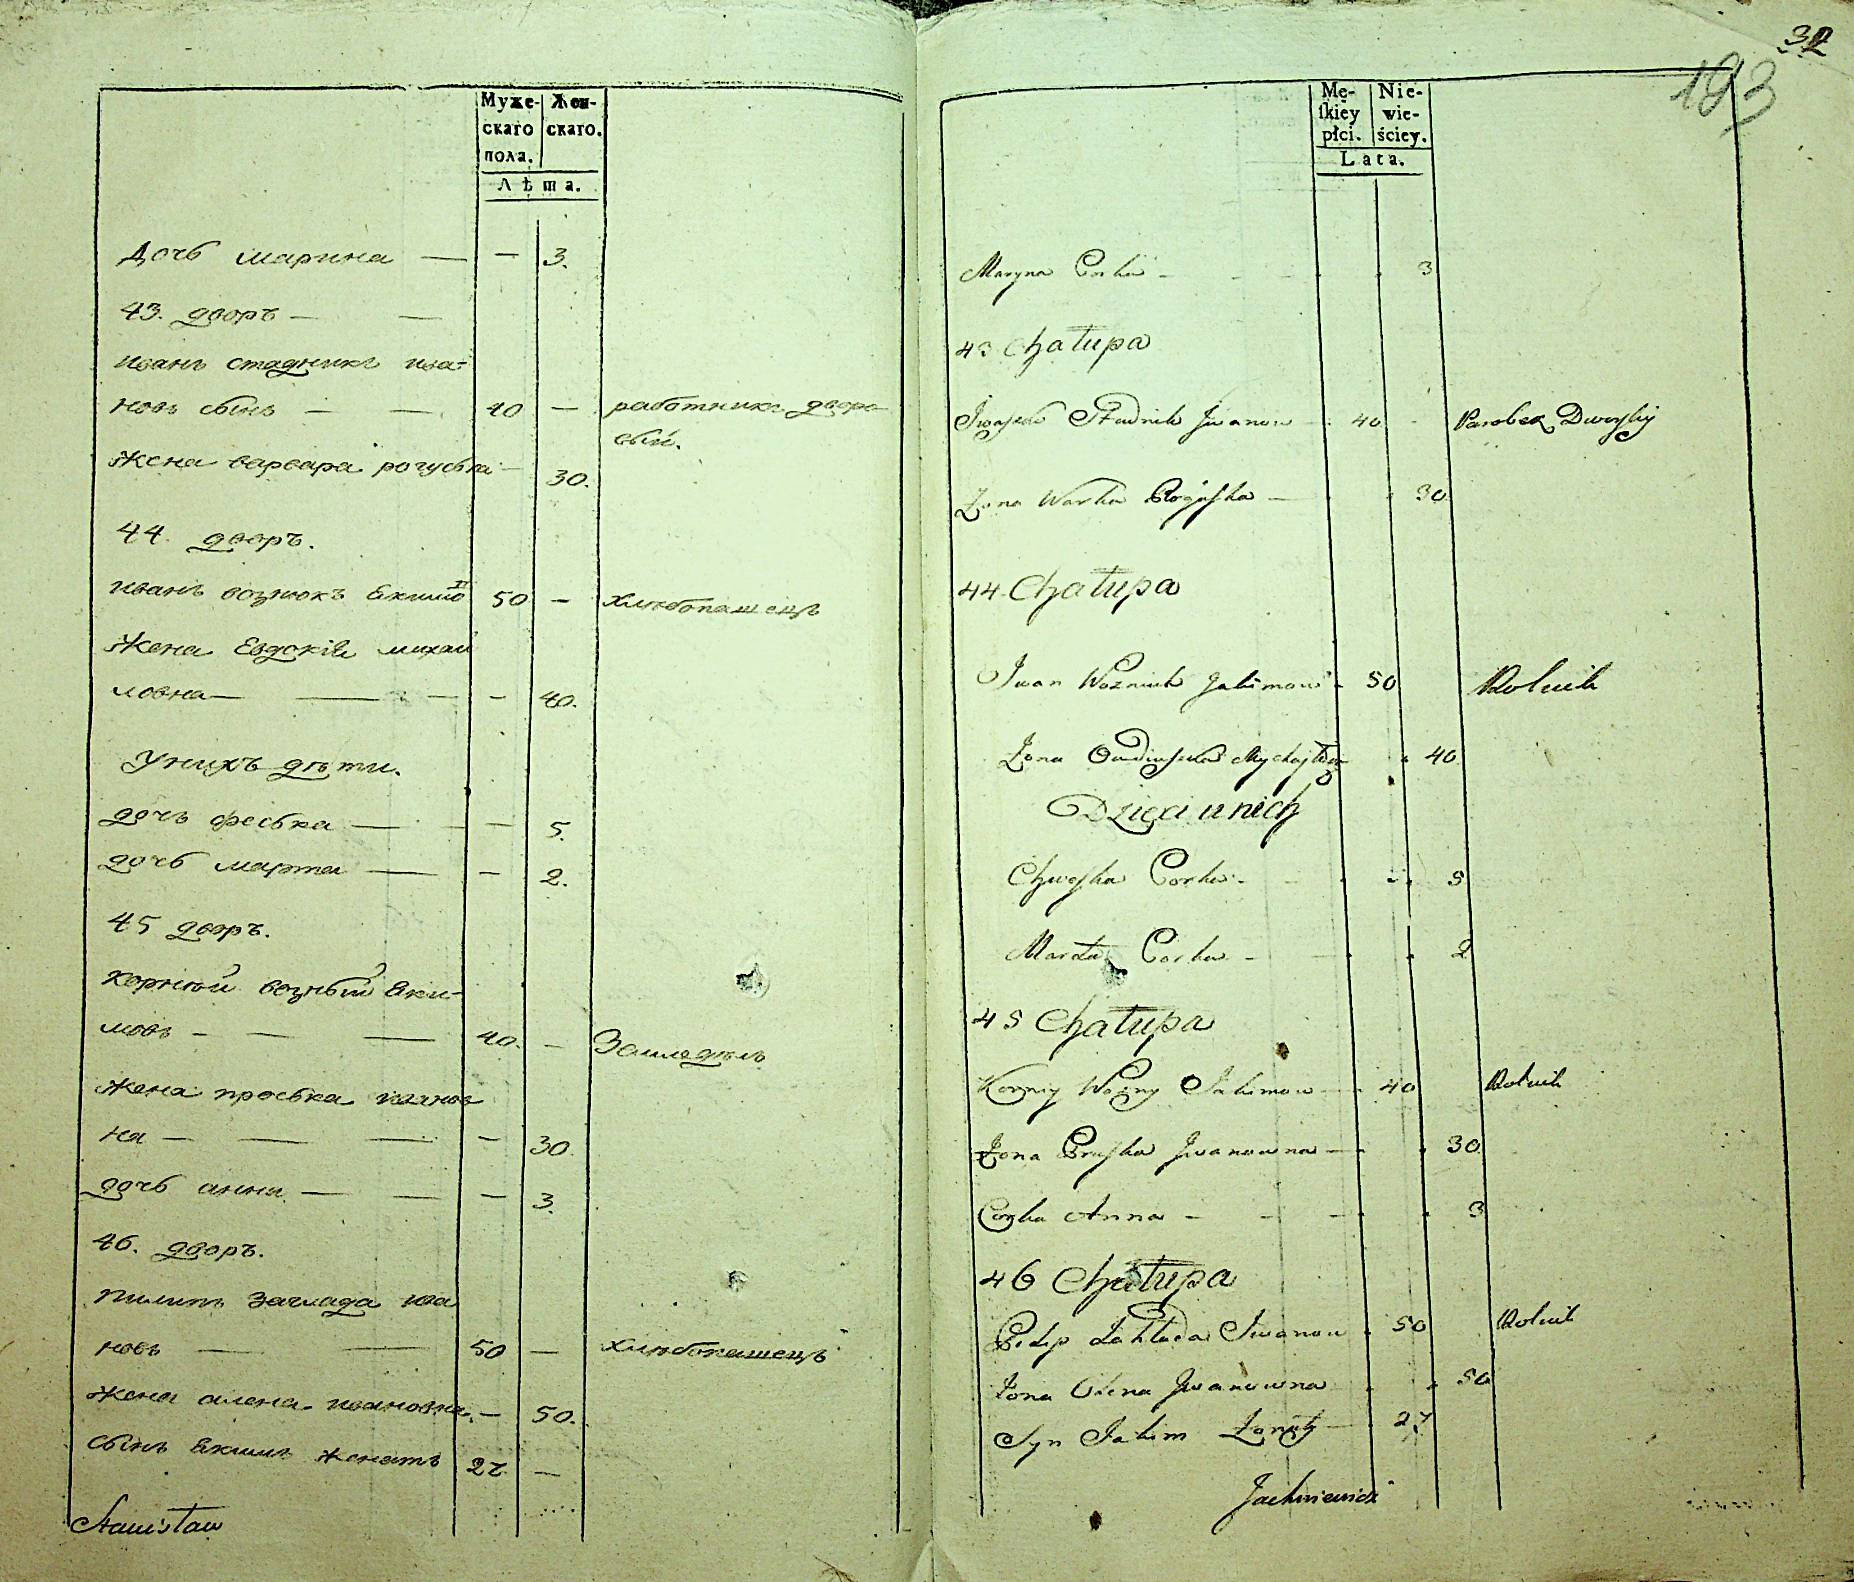 Муже-
скаго
пола.
Жен-
скаго.
Лѣта.
Дочь марина — — 3.
43. дворъ —
иванъ стадникъ ива-
новъ сынъ — — 40 — работникъ дворо
вый.
жена варвара рогуська — 30.
44 дворъ.
иванъ вознюкъ Екимо 50 — хлѣбопашецъ
жена Евдокія михай
ловна — — — 40.
У нихъ дѣти.
дочь феська — — 5.
дочь марта — — 2.
45 дворъ.
корній возный Еки-
мовъ — — 40. — Земледѣлъ
жена проська иванов
на — — — 30
дочь анна — — 3.
46. дворъ.
пилипъ заглада ива
новъ — 50 — хлѣбопашецъ
жена алена ивановна — 50.
сынъ Екимъ женатъ 27 —
Stanisław
32
193
Mę-
skiey
płci.
Nie-
wie-
ściey.
Lata.
Maryna Corka - 3
43 Chałupa
Iwaśko Stadnik Iwanow 40 Parobek Dworski
Żona Warka Roguska — 30
44 Chałupa
Iwan Wozniuk Jakimow 50 Rolnik
Żona 40
Dzieci u nich
Chweska Corka - 5
Marta Corka - 2
45 Chałupa
Korniy Wozny Jakimow — 40 Rolnik
Żona Pruska Iwanowna — 30
Corka Anna - 3
46 Chałupa
Pilip Zahłada Iwanow 50 Rolnik
Żona Olena Iwanowna 50
Syn Jakim Żonaty — 27
Jachniewicz